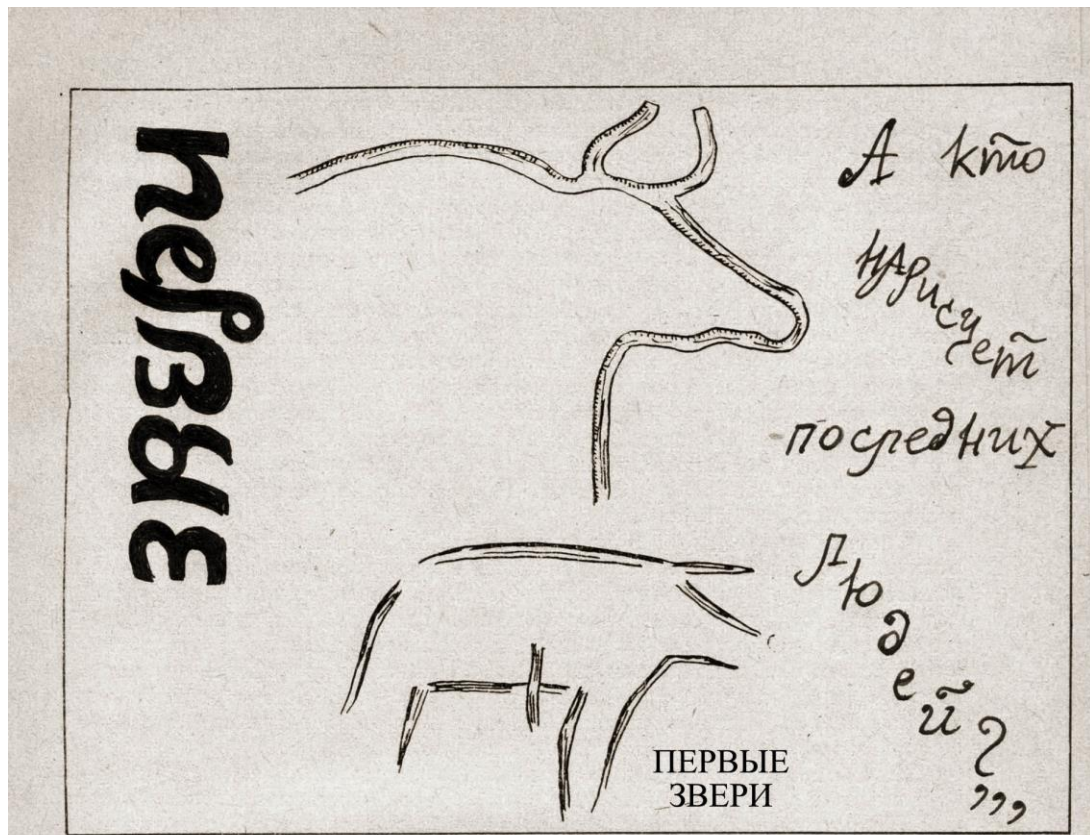 первые
А кто
НАРисует
последних
Людей?,,,
ПЕРВЫЕ
ЗВЕРИ